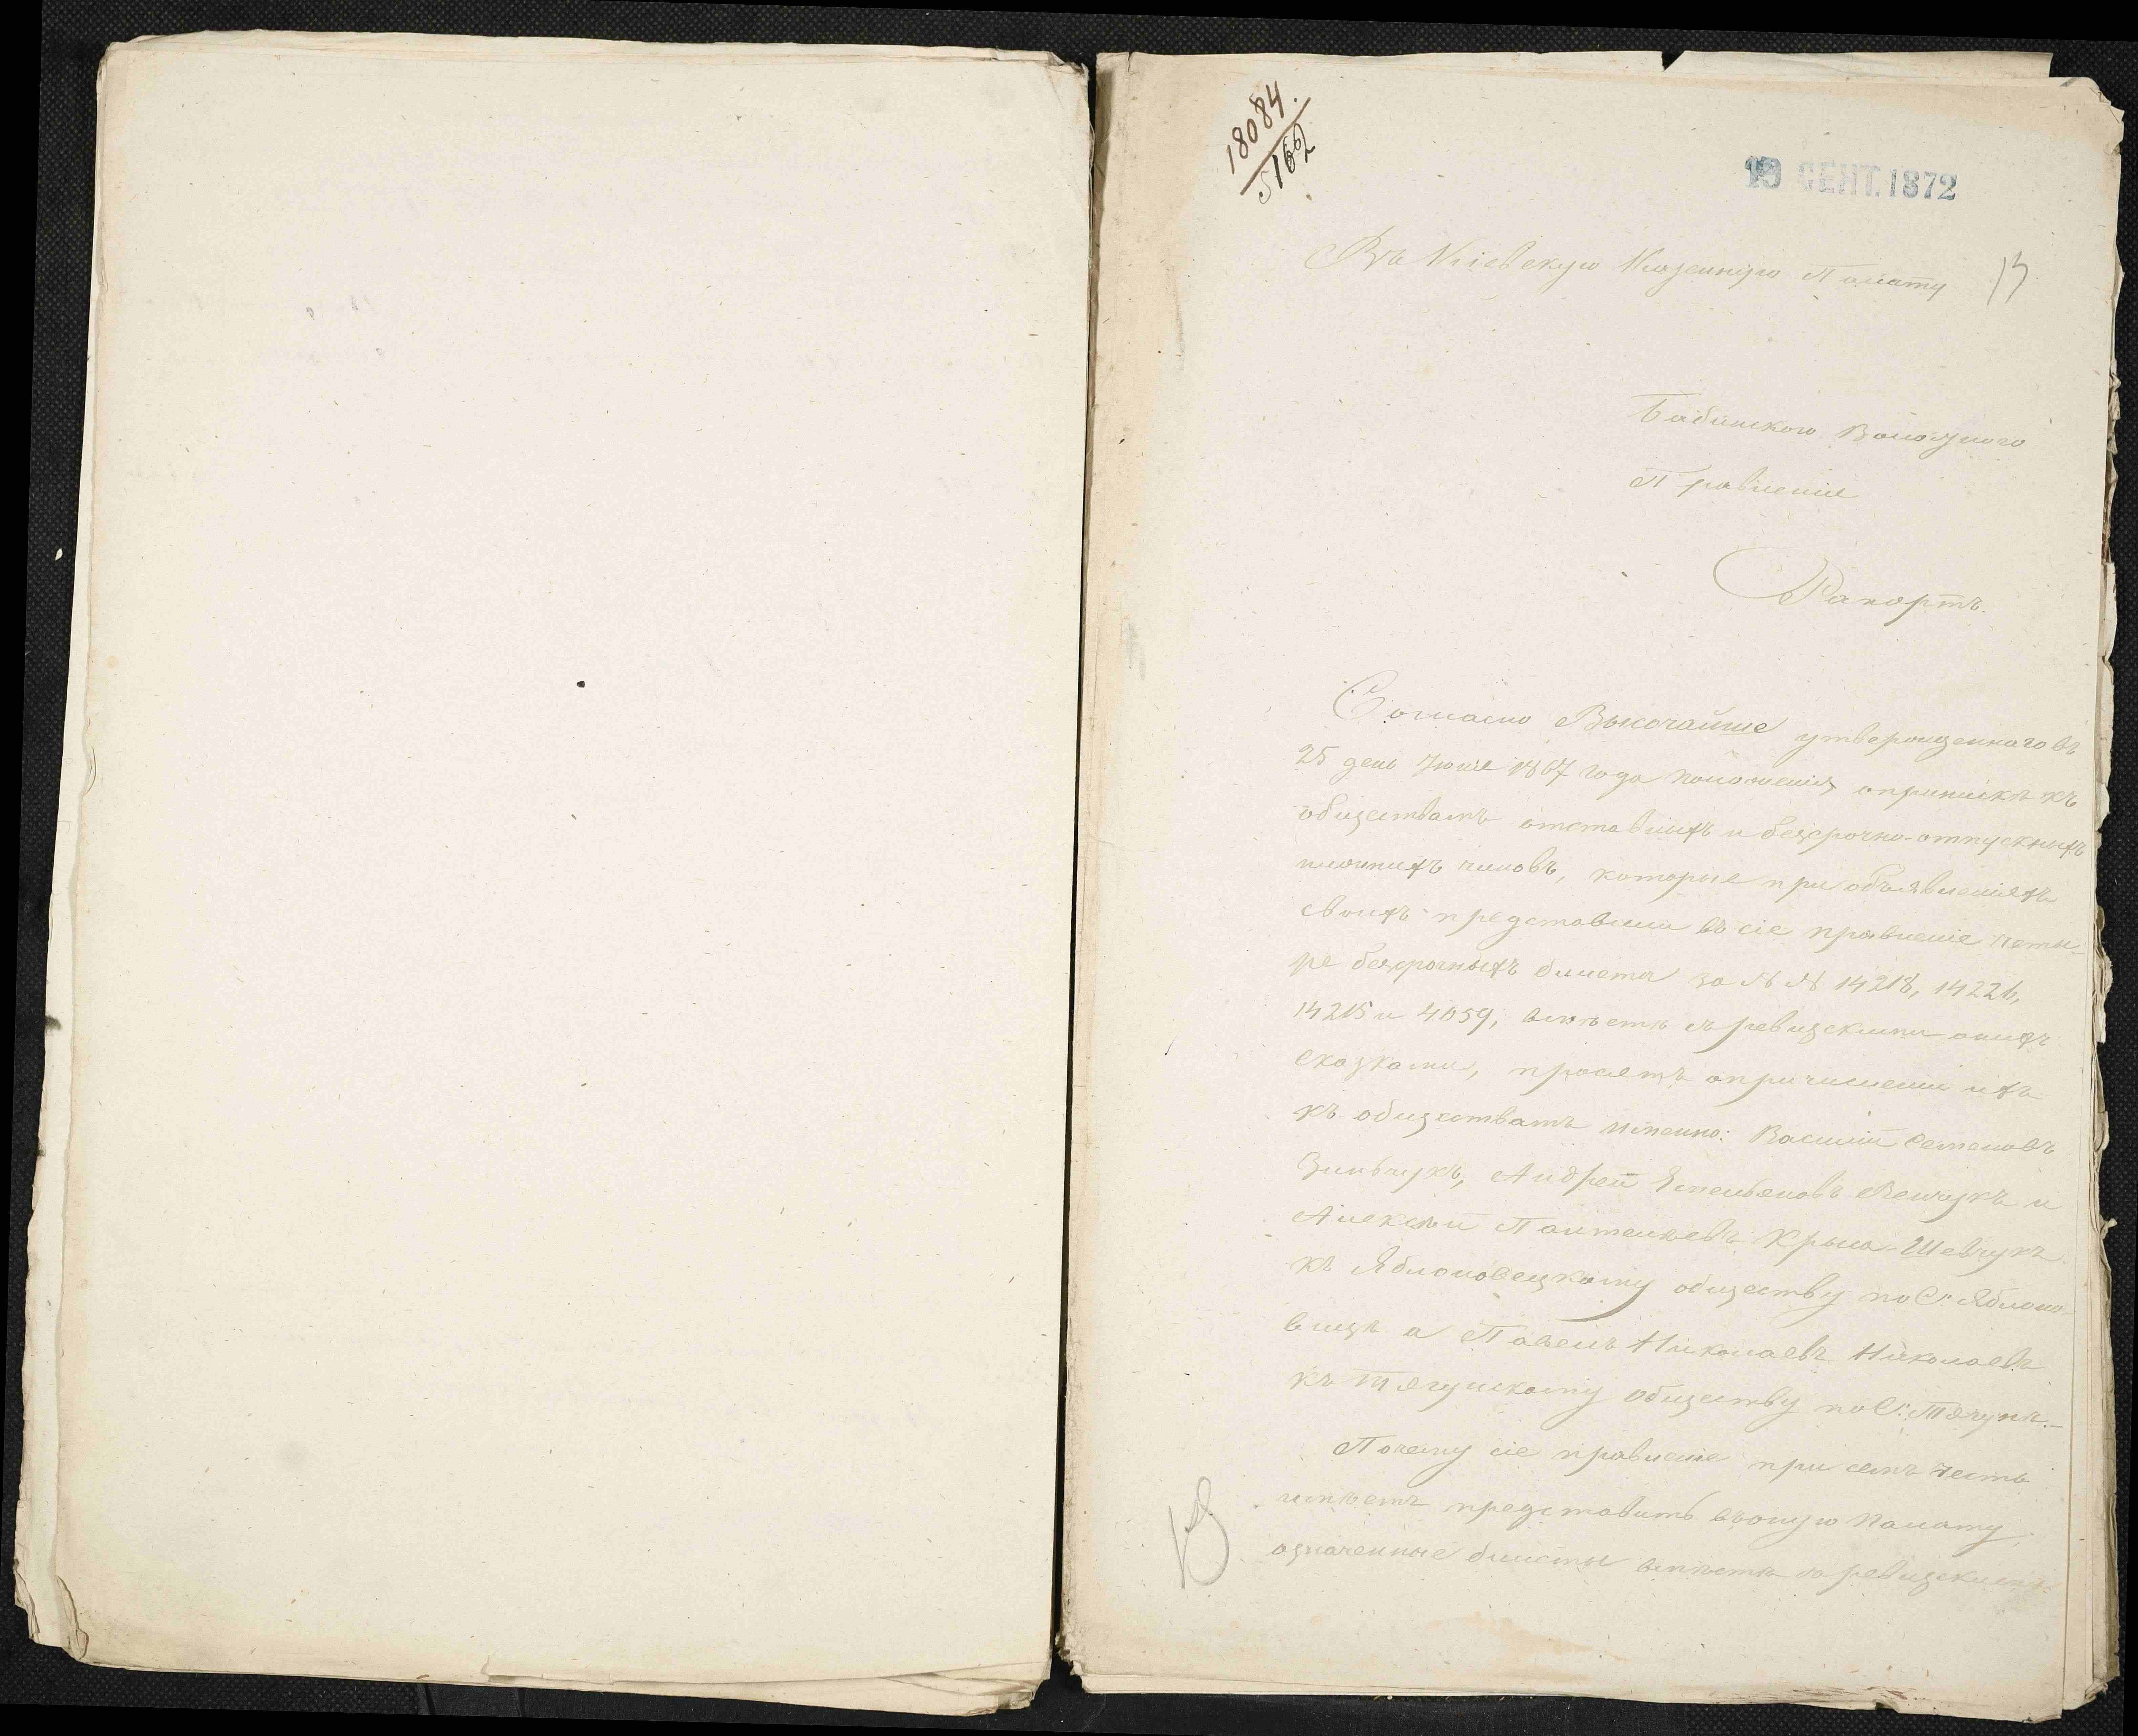 18084.
5162
19 СЕНТ. 1872
Въ Кіевскую Казенную Палату
13
Бабинского Волостного
Правленія
Рапортъ.
Согласно Высочайше утвержденнаго въ
25 день Іюня 1867 года положенія оприпискѣ къ
обществамъ отставныхъ и безсрочно-отпускныхъ
нижнихъ чиновъ, которые при объявленіяхъ
своихъ представили въ сіе правленіе четы-
ре безсрочныхъ билета за №№ 14218, 14226,
14215 и 4059, вмѣстѣ съ ревизскими онихъ
сказками, просятъ опричислении ихъ
къ обществамъ именно: Василій Семеновъ
Зинчукъ, Андрей Емельяновъ и
Алексѣй Пантелѣевъ Крыса-Шевчукъ
къ Яблоновецкому обществу по С. Яблоно-
вицѣ а Павелъ Николаевъ Николаевъ
къ Тягунскому обществу по С. Тягунъ.-
Почему сіе правленіе при семъ честь
имѣетъ представить въ оную Палату
означенные билеты вмѣстѣ съ ревизскими